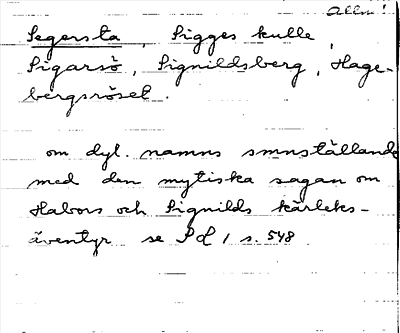 Allm!
Segersta, Sigges kulle,
Sigarsö, Signildsberg, Hage-
bergsröset.
om dyl. namns smnställande
med den mytiska sagan om
Habors och Signilds kärleks-
äventyr se
s. 548